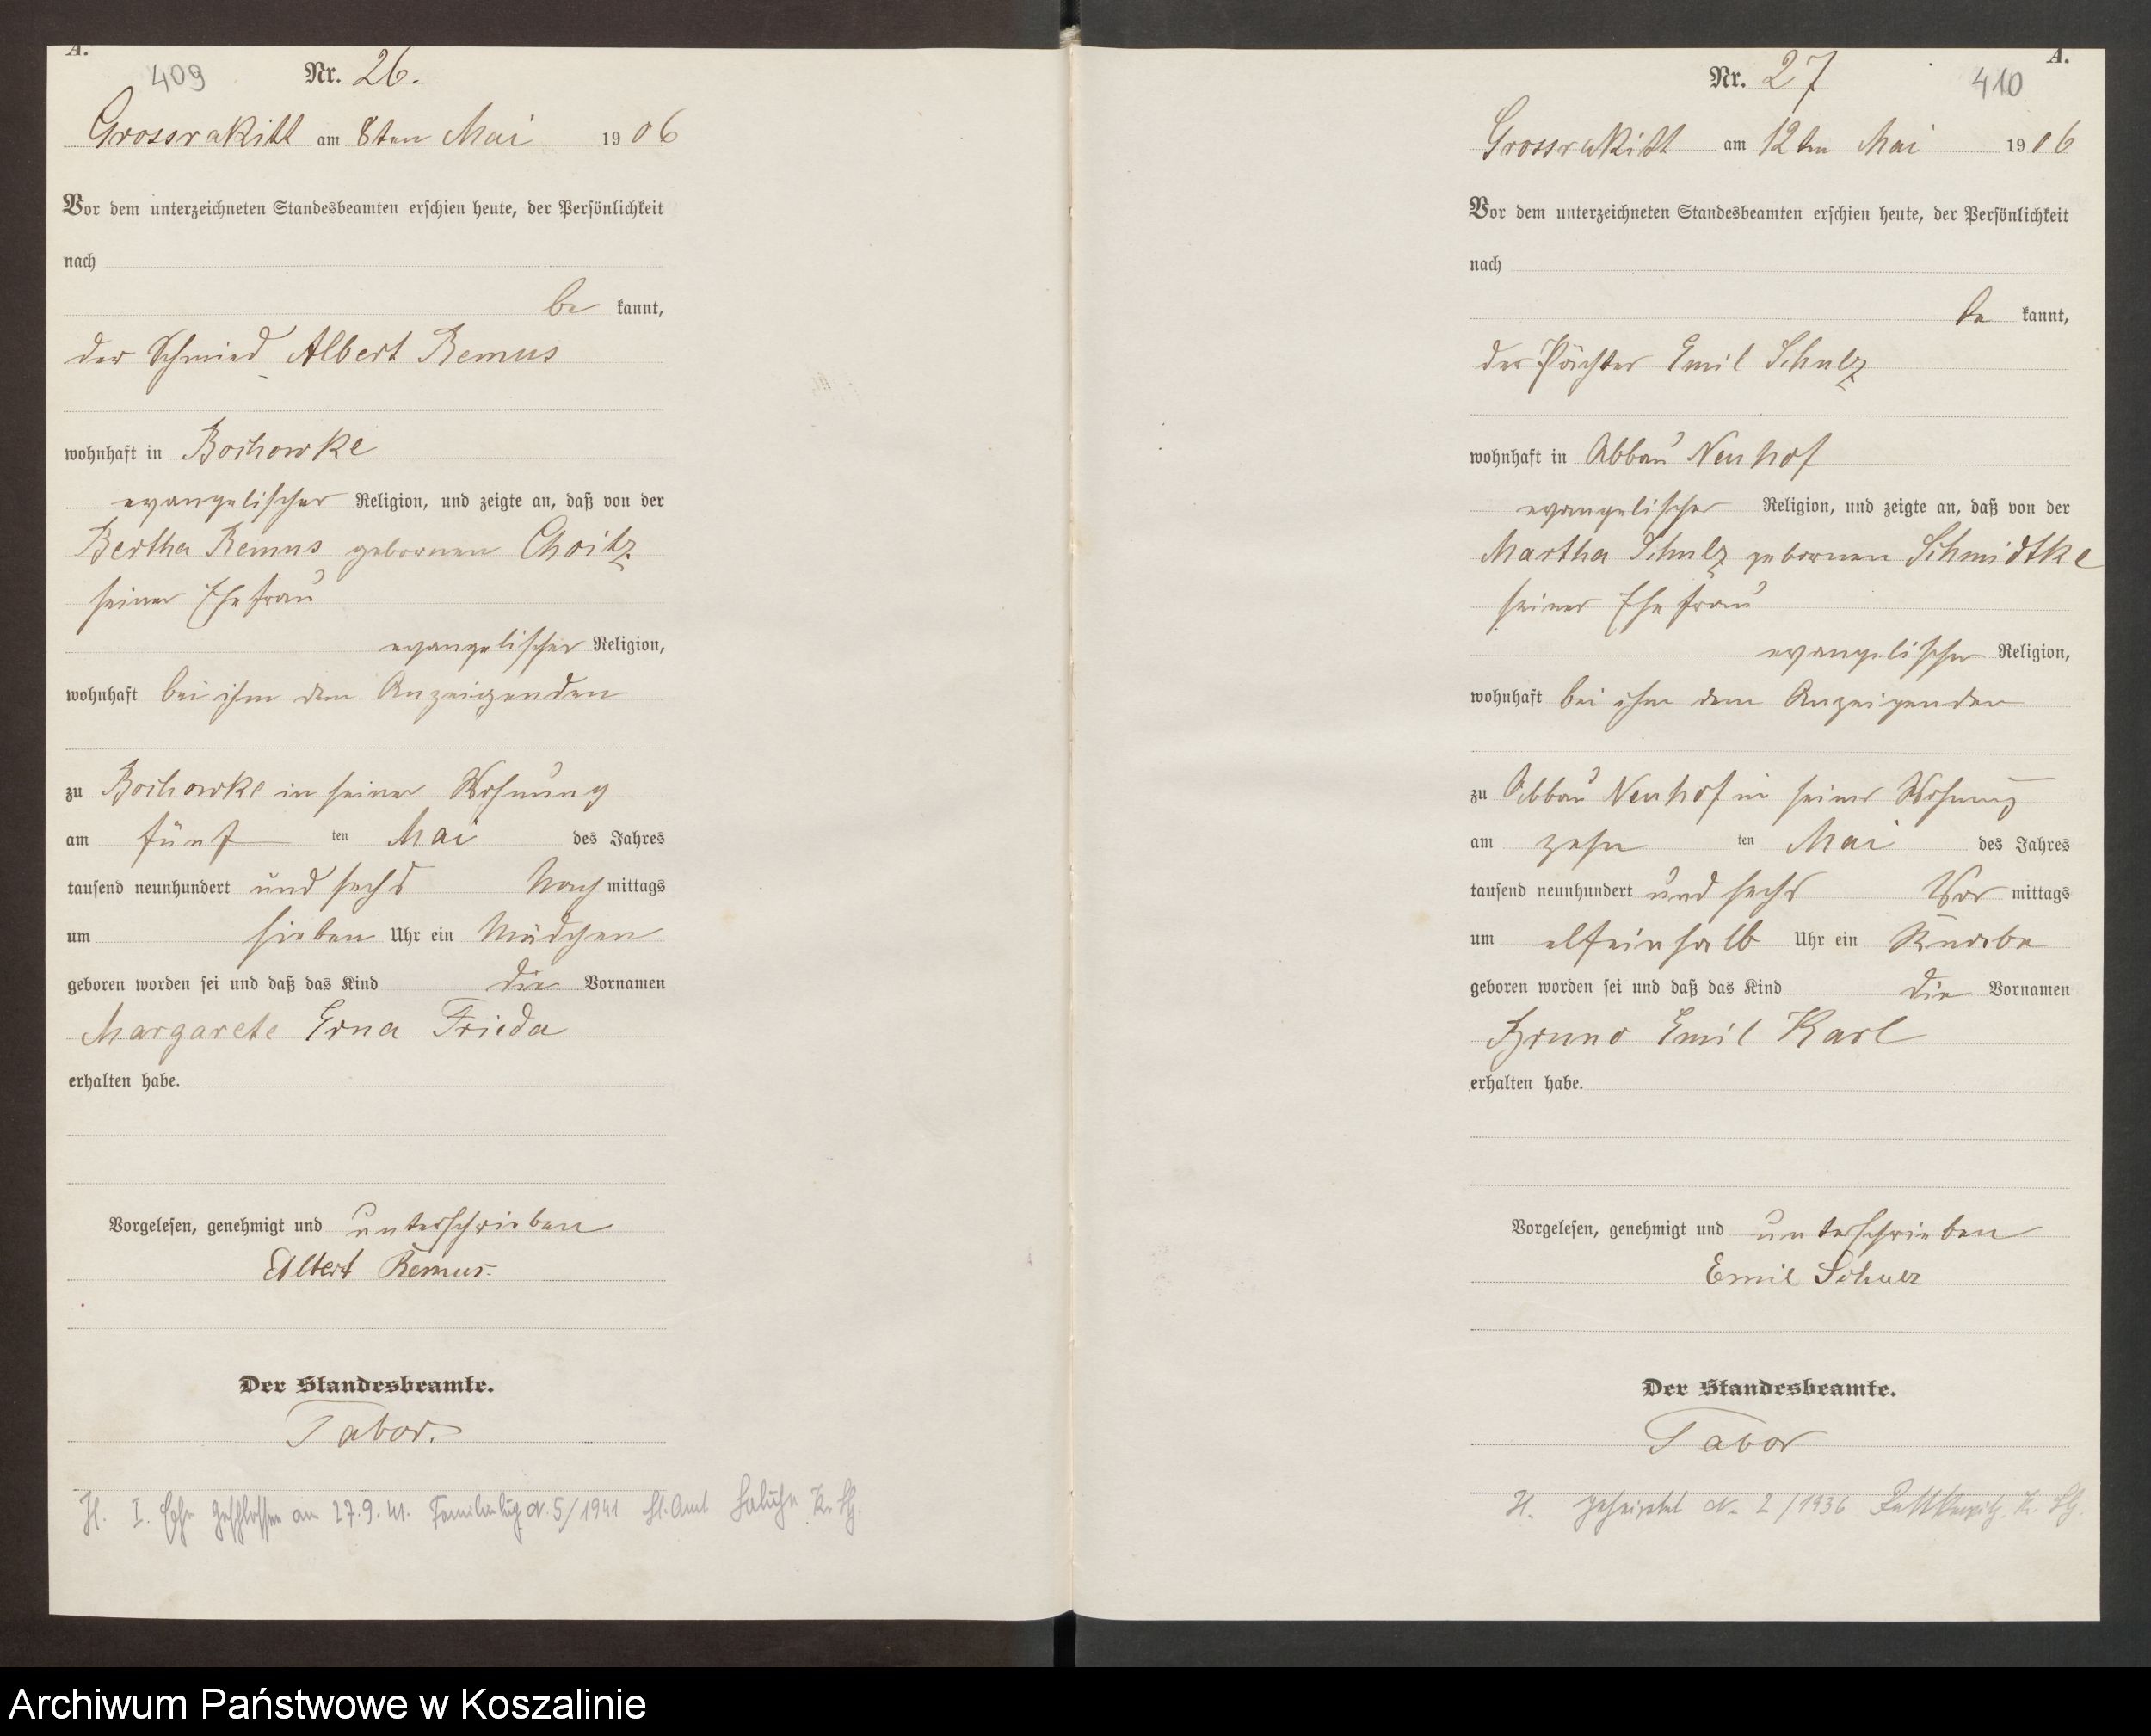 A.
409 Nr. 26.
Grossrakitt am 8ten Mai 1906
Vor dem unterzeichneten Standesbeamten erschien heute, der Persönlichkeit
nach
be kannt,
der Schmied Albert Remus
wohnhaft in Bochowke
evangelischer Religion, und zeigte an, daß von der
Bertha Remus gebornen Choitz
seiner Ehefrau
evangelischer Religion,
wohnhaft bei ihm dem Anzeigenden
zu Bochowke in seiner Wohnung
am fünf ten Mai des Jahres
tausend neunhundert und sechs Nach mittags
um sieben Uhr ein Mädchen
geboren worden sei und daß das Kind die Vornamen
Margarete Erna Frieda
erhalten habe.
Vorgelesen, genehmigt und unterschrieben
Albert Remus.
Der Standesbeamte.
Tabor.
H. I. Ehe geschlossen am 27.9.41. N. 5/1941 St. Amt
A.
Nr. 27 410
Grossrakitt am 12ten Mai 1906
Vor dem unterzeichneten Standesbeamten erschien heute, der Persönlichkeit
nach
be kannt,
der Pächter Emil Schulz
wohnhaft in Abbau Neuhof
evangelischer Religion, und zeigte an, daß von der
Martha Schulz gebornen Schmidtke
seiner Ehefrau
evangelischer Religion,
wohnhaft bei ihm dem Anzeigenden
zu Abbau Neuhof in seiner Wohnung
am zehn ten Mai des Jahres
tausend neunhundert und sechs Vor mittags
um elfeinhalb Uhr ein Knabe
geboren worden sei und daß das Kind die Vornamen
Bruno Emil Karl
erhalten habe.
Vorgelesen, genehmigt und unterschrieben
Emil Schulz
Der Standesbeamte.
Tabor
H. geheiratet Nr. 2/1936
Archiwum Państwowe w Koszalinie